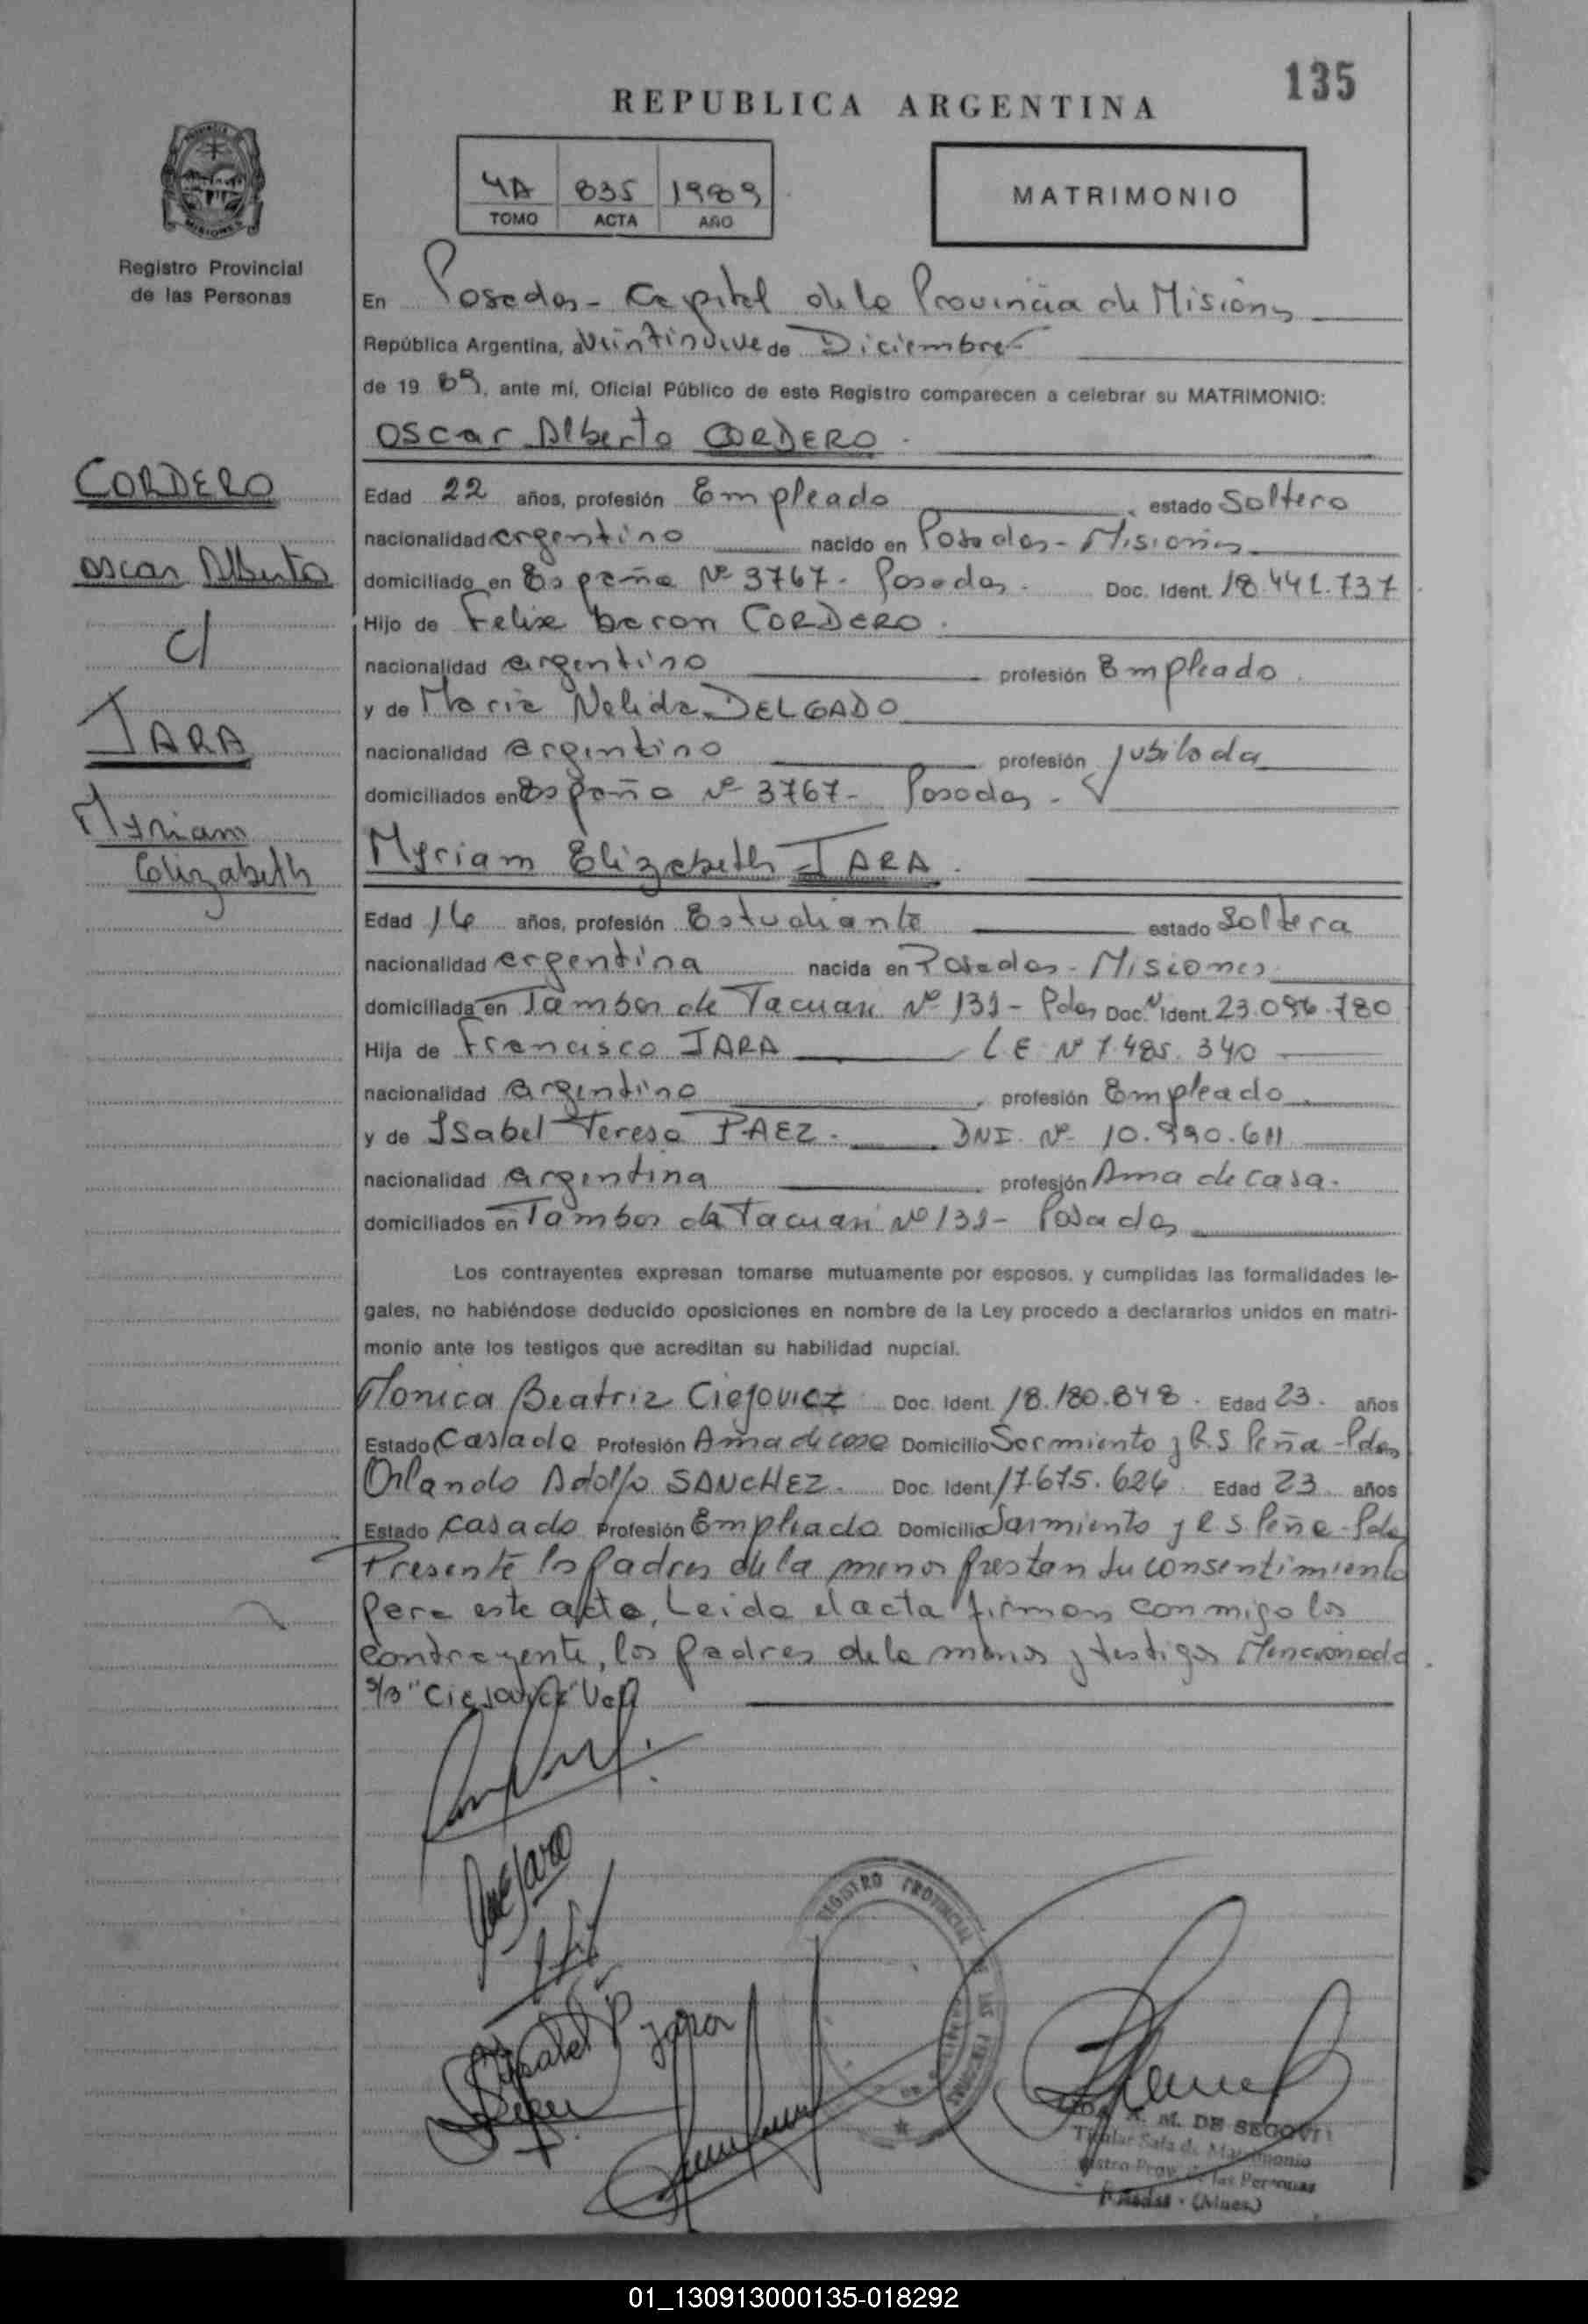 135
REPUBLICA ARGENTINA
4A 835 1989
TOMO ACTA AÑO
MATRIMONIO
Registro Provincial
de las Personas
En Posadas - Capital de la Provincia de Misiones
República Argentina, a veintinueve de Diciembre
de 19 89, ante mí, Oficial Público de este Registro comparecen a celebrar su MATRIMONIO:
Oscar Alberto CORDERO.
CORDERO
Oscar Alberto
c/
JARA
Myriam
Elizabeth
Edad 22 años, profesión Empleado estado Soltero
nacionalidad argentino nacido en Posadas - Misiones
domiciliado en España Nº 3767 - Posadas. Doc. Ident. 18.441.737
Hijo de Felix baron CORDERO.
nacionalidad argentino profesión Empleado.
y de Maria Nelida DELGADO
nacionalidad argentino profesión jubilada
domiciliados en España Nº 3767 - Posadas -
Myriam Elizabeth JARA.
Edad 16 años, profesión Estudiante estado Soltera
nacionalidad argentina nacida en Posadas - Misiones
domiciliada en Tambor de Tacuari Nº 139 - Pdas Doc. Ident. 23.096.780
Hija de Francisco JARA L E Nº 7.485.340
nacionalidad argentino profesión Empleado
y de Isabel Teresa PAEZ. DNI. Nº 10.990.611
nacionalidad argentina profesión Ama de casa.
domiciliados en Tambor de Tacuari Nº 139 - Posadas
Los contrayentes expresan tomarse mutuamente por esposos, y cumplidas las formalidades le-
gales, no habiéndose deducido oposiciones en nombre de la Ley procedo a declararlos unidos en matri-
monio ante los testigos que acreditan su habilidad nupcial.
Monica Beatriz Ciejovicz Doc. Ident. 18.180.848. Edad 23. años
Estado Casada Profesión Ama de casa Domicilio Sarmiento y R.S Peña - Pdas
Orlando Adolfo SANCHEZ. Doc. Ident. 17.675.626 Edad 23 años
Estado casado Profesión Empleado Domicilio Sarmiento y R.S. Peña - Pdas
Presente los padres de la menor prestan su consentimiento
para este acto, Leida el acta firman conmigo los
contrayente, los padres de la menor y testigos Mencionado.
S/B "Ciejovicz" Vale
REGISTRO PROVINCIAL DE LAS PERSONAS
A. M. DE SEGOVI
Titular Sala de Matrimonio
Prov. de las Personas
Posadas - (Mnes.)
01_130913000135-018292